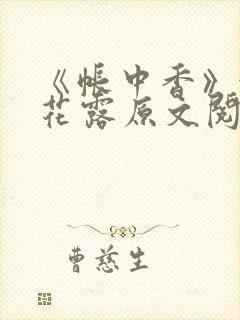 《帐中香》
花露原文阅
曹慈生